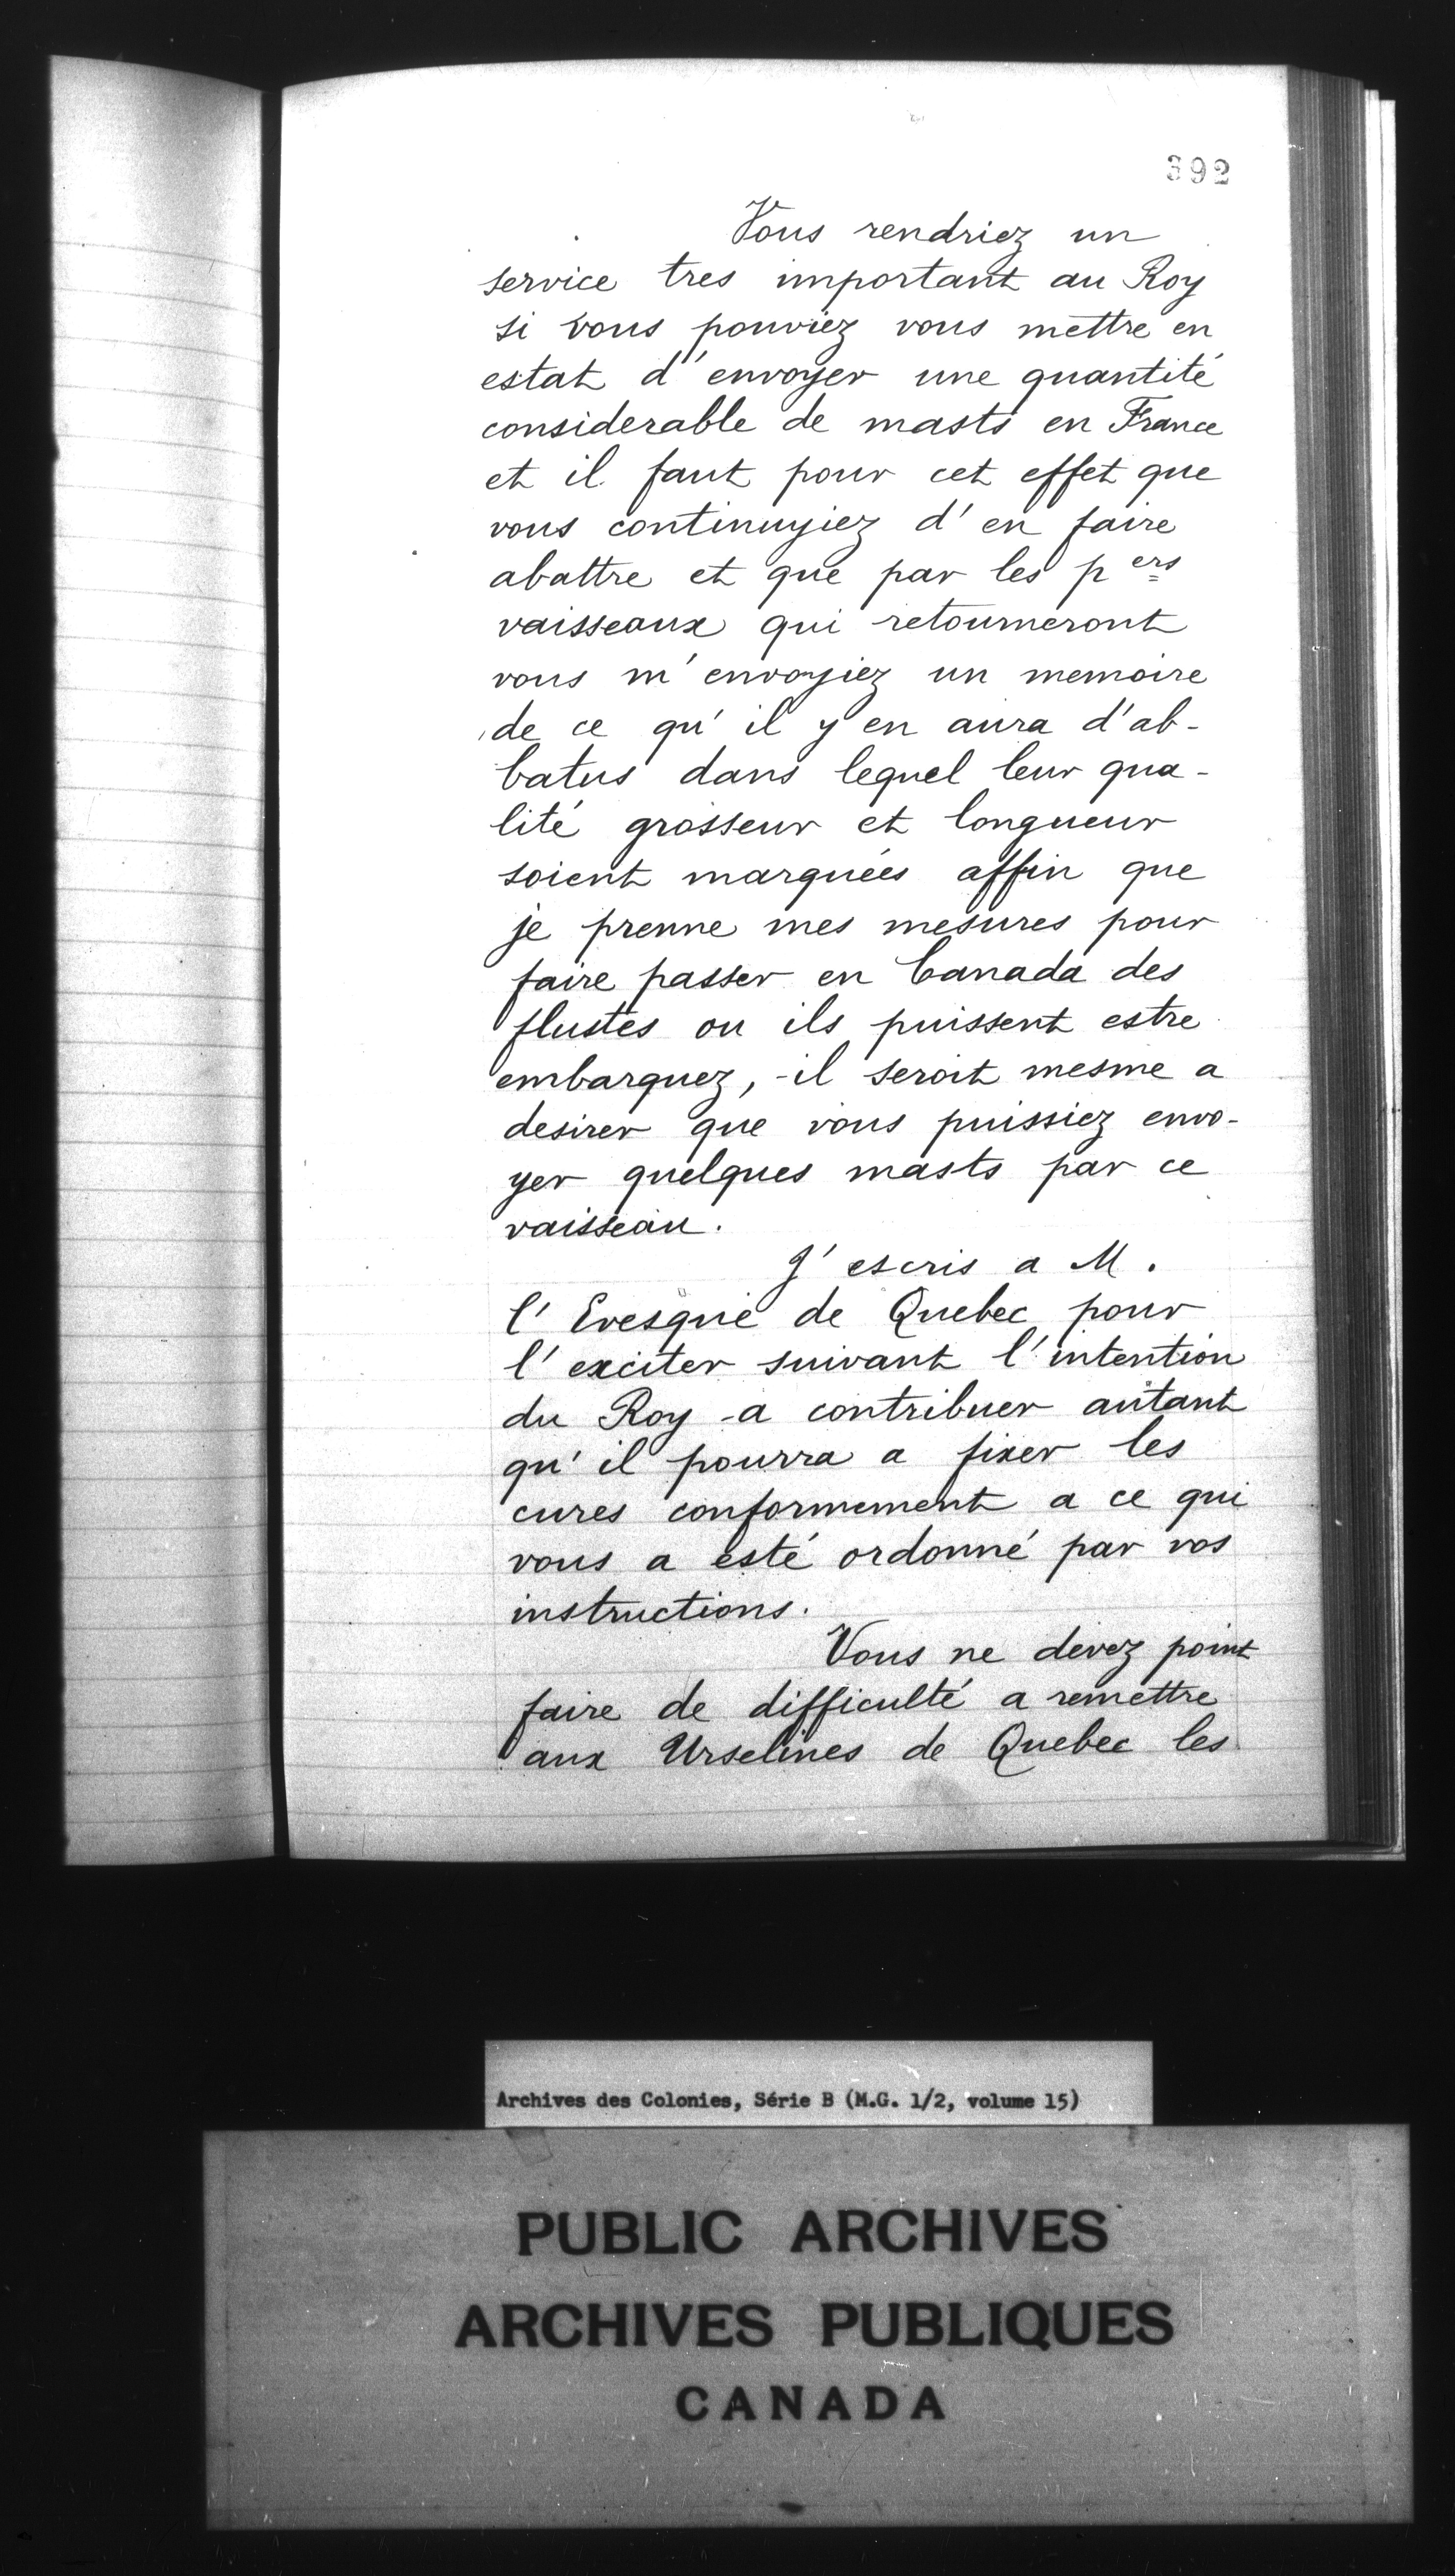 392
Vous rendriez un
service tres important au Roy
si vous pouviez vous mettre en
estat d'envoyer une quantité
considerable de masts en France
et il faut pour cet effet que
vous continuyiez d'en faire
abattre et que par les pers
vaisseaux qui retourneront
vous m'envoyiez un memoire
de ce qu'il y en aura d'ab-
batus dans lequel leur qua-
lité grosseur et longueur
soient marquées affin que
je prenne mes mesures pour
faire passer en Canada des
flustes ou ils puissent estre
embarquez, il seroit mesme a
desirer que vous puissiez envo-
yer quelques masts par ce
vaisseau.
J'escris a M.
l'Evesque de Quebec pour
l'exciter suivant l'intention
du Roy a contribuer autant
qu'il pourra a fixer les
cures conformement a ce qui
vous a esté ordonné par vos
instructions.
Vous ne devez point
faire de difficulté a remettre
aux Urselines de Quebec les
Archives des Colonies, Série B (M.G. 1/2, volume 15)
PUBLIC ARCHIVES
ARCHIVES PUBLIQUES
CANADA